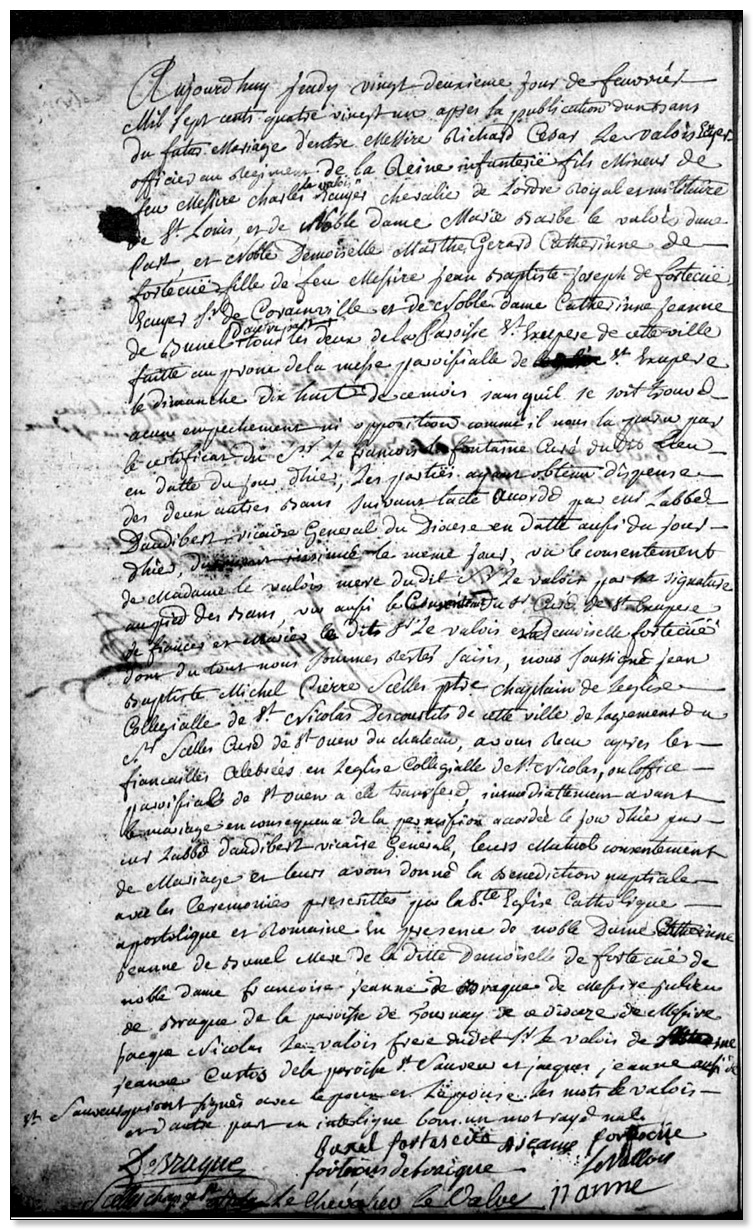 Aujourdhuy Jeudy vingt deuxieme jour de feuvrier
Mil sept cents quatre vingt un apres la publication dun bans
du futur Mariage d'entre Messire Richard Cesar Le valois Ecuyer
officier au Regiment de la Reine infanterie fils Mineur de
feu Messire Charles le valois Ecuyer chevalier de Lordre Royal et militaire
de St Louis, et de Noble dame Marie Barbe le valois dune
Part et Noble Demoiselle Marthe Gerard Catherinne de
fortecuë fille de feu Messire Jean Baptiste Joseph de fortecuë
Ecuyer Sr de Corainville et de Noble dame Catherinne Jeanne
de Bunel Dautre part tous les deux de la Paroisse St Exupere de cette ville
faitte au prone de la messe paroissialle de St Exupere
le dimanche dix huit de ce mois sans quil se soit trouvé
aucun empechement ni opposition comme il nous la paru par
le certificat du Sr Le francois de la fontaine Curé dudit Lieu
en datte du jour dhier, Les parties ayant obtenu dispense
des deux autres Bans suivant lacte accordé par mr Labbé
Daudibert vicaire General du Diocese en datte aussi du jour
dhier, le meme jour, vu le consentement
de Madame le valois mere dudit Sr Le valois par sa signature
au pied des Bans, vu aussi le Consentement du Sr Curé de St Exupere
de fiancer et Marier le dits Sr Le valois et la demoiselle fortecuë
dont du tout nous sommes restés saisis, nous soussigné Jean
Baptiste Michel Pierre Scelles ptre chapelain de Leglise
Collegialle de St Nicolas Descourtils de cette ville de Lagrement du
Sr Scelles Curé de St ouen du chateau, avons Recu apres les
fiancailles Celebrées en Leglise Collegialle de St Nicolas, ou loffice
paroissiale de St ouen a été transferé, immediattement avant
le mariage en consequence de la permission accordée le jour dhier par
mr Labbé daudibert vicaire General, leurs Mutuel consentement
de Mariage et leurs avons donné la Benediction nuptiale
avec les Ceremonies prescrittes par la Ste Eglise Catholique
apostolique et Romaine En presence de noble Dame Catherinne
jeanne de Bunel Mere de la ditte demoiselle de fortecuë de
noble dame francoise jeanne de Braque de Messire julien
de Braque de la paroisse de Tournay de ce diocese de Messire
jacque Nicolas Le valois frere dudit Sr Le valois de
jeanne Custos de la paroisse St Sauveur et jacques jeanne aussi de
St Sauveur qui ont signés avec Lepoux et Lepouse les mots le valois
et dautre part en interligne bons. un mot rayé nul
DeBraque Bunel fortescuë Jeanne fortecuë
de braque LeVallois
Scelles Le Chevalier Le Valois jeanne